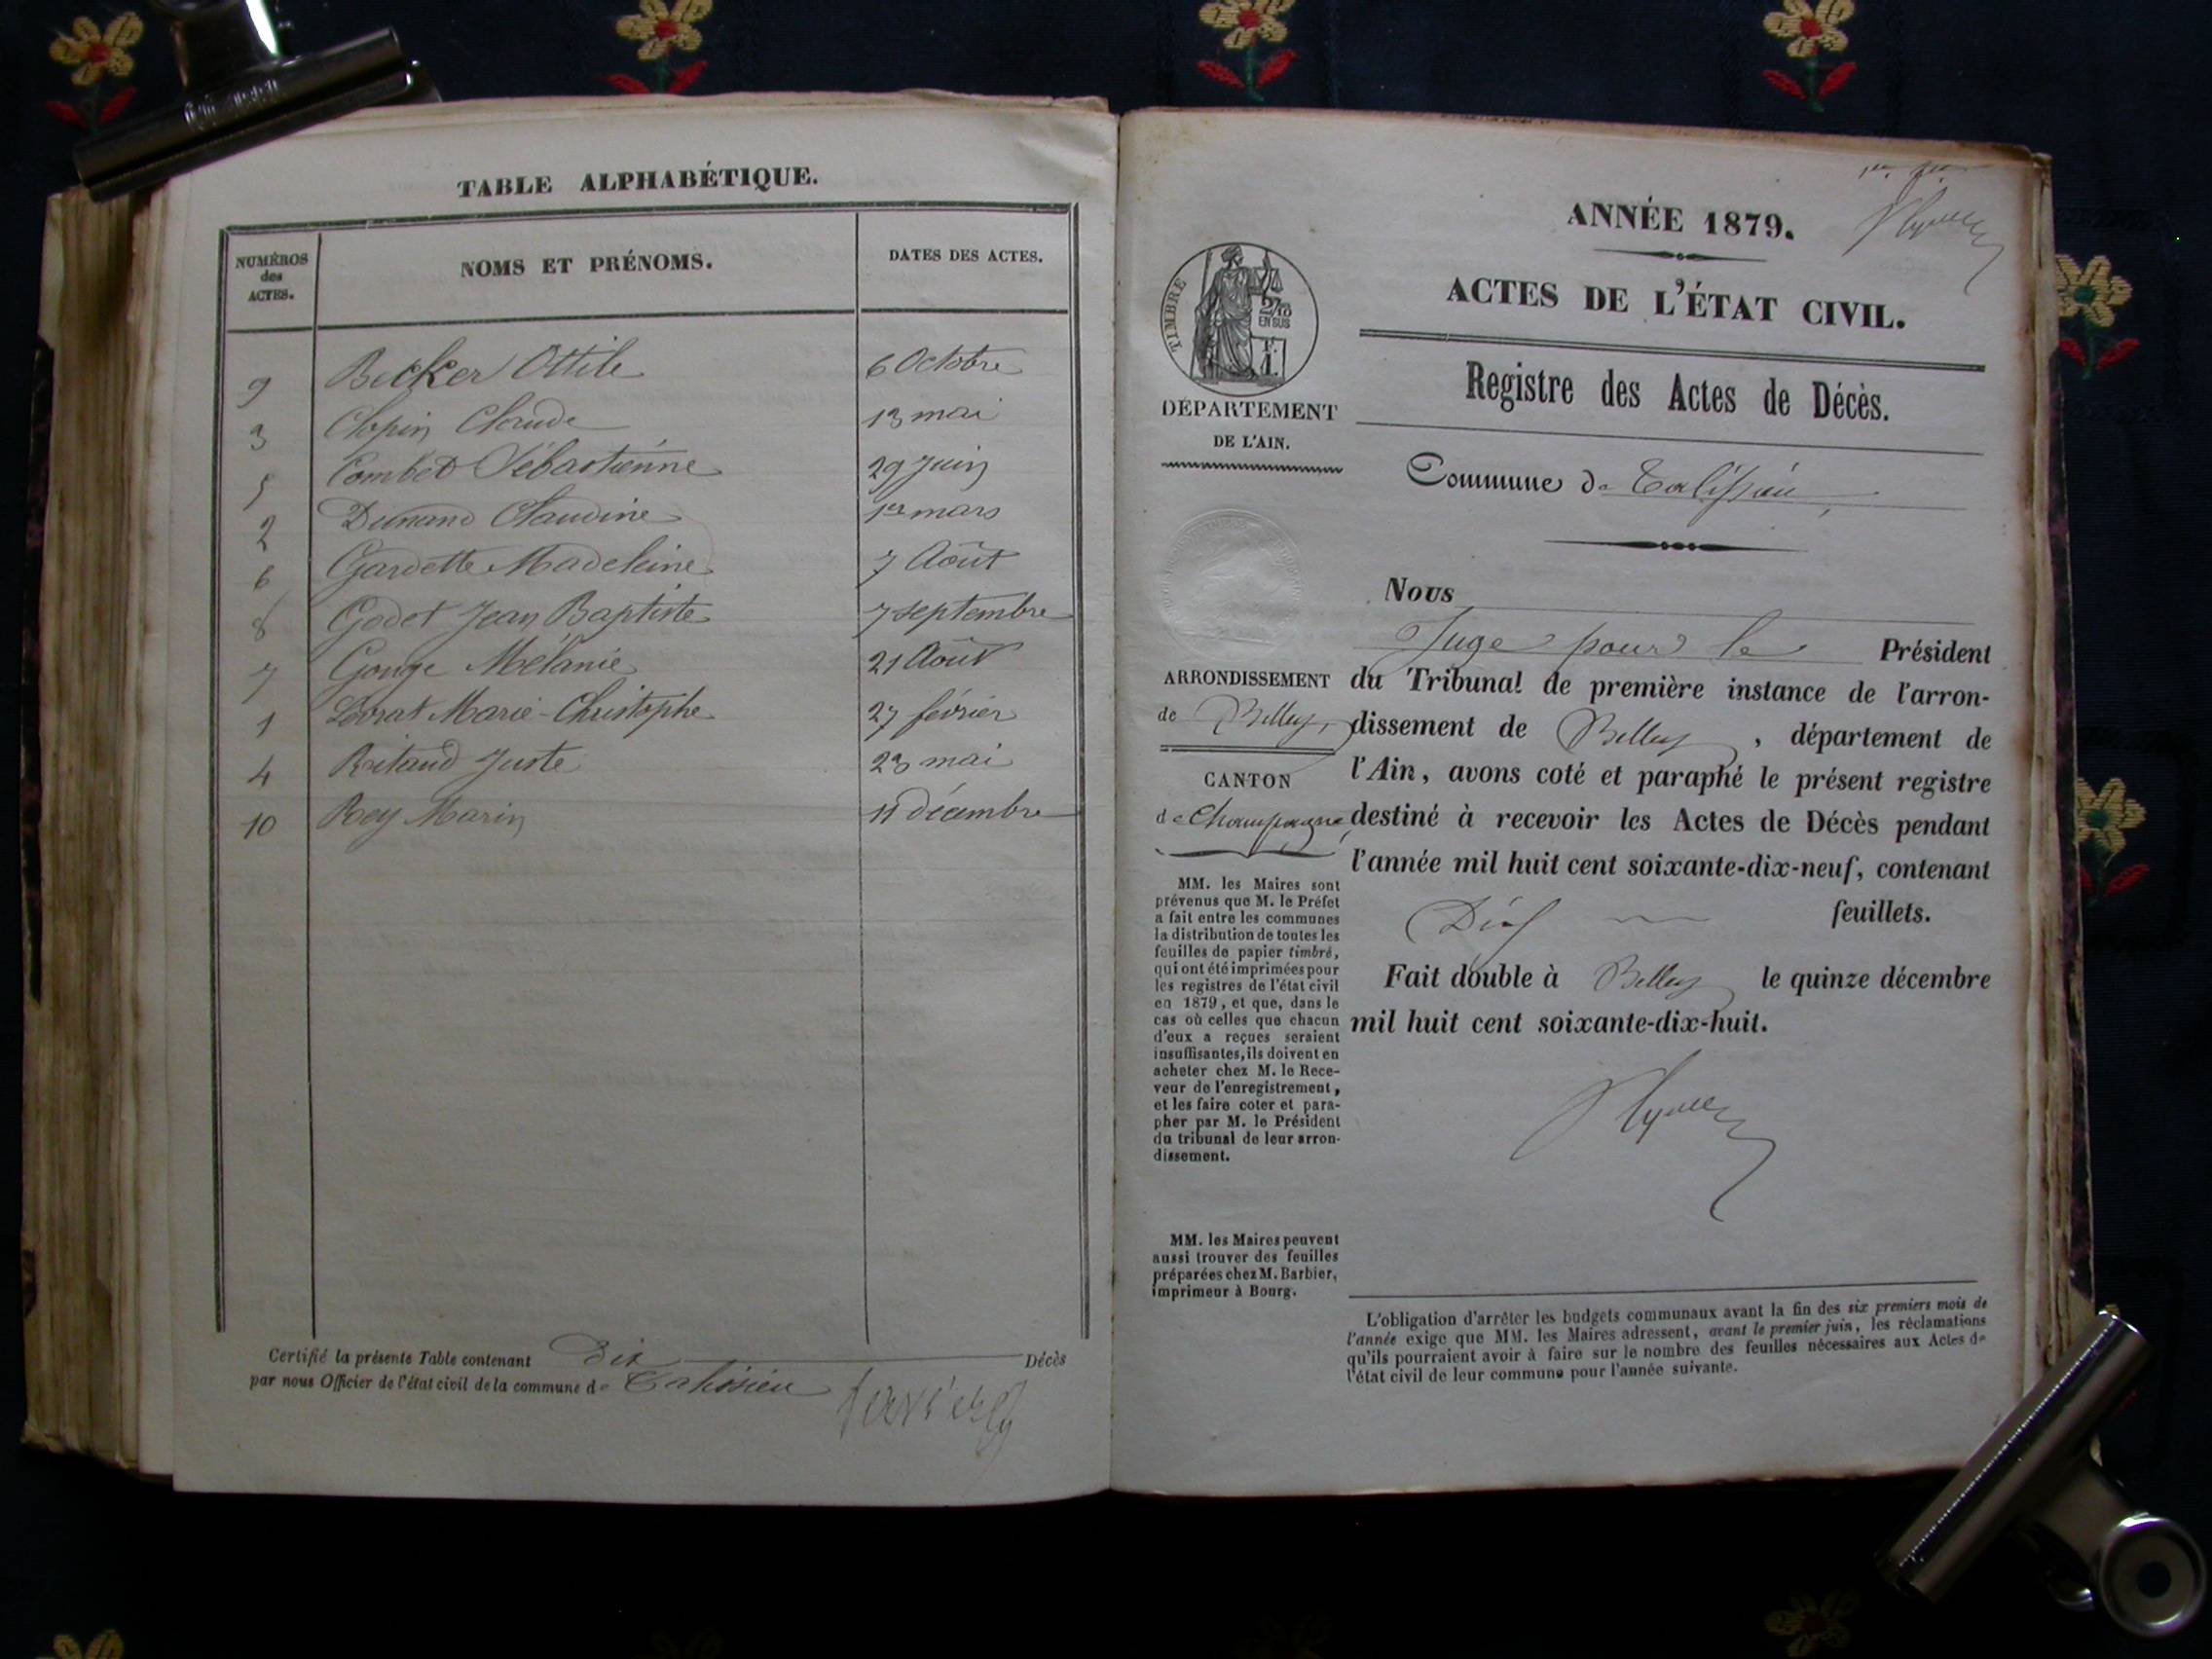 TABLE ALPHABÉTIQUE.
NUMÉROS des ACTES.
NOMS ET PRÉNOMS.
DATES DES ACTES.
9 Becker Ottile 6 Octobre
3 Clopin Claude 13 mai
5 Combet Sébastienne 29 Juin
2 Dunand Claudine 1er mars
6 Gardette Madeleine 7 Août
8 Godet Jean Baptiste 7 septembre
7 Gouge Mélanie 21 Août
1 Levrat Marie-Christophe 27 février
4 Ritaud Juste 23 mai
10 Rey Marin 11 décembre
Certifié la présente Table contenant dix Décès
par nous Officier de l'état civil de la commune de Talissieu
ANNÉE 1879.
ACTES DE L'ÉTAT CIVIL.
Registre des Actes de Décès.
Commune de Talissieu
TIMBRE
2/10
EN SUS
1F.
DÉPARTEMENT
DE L'AIN.
ARRONDISSEMENT
de Belley,
CANTON
de Champagne
MM. les Maires sont
prévenus que M. le Préfet
a fait entre les communes
la distribution de toutes les
feuilles de papier timbré,
qui ont été imprimées pour
les registres de l'état civil
en 1879, et que, dans le
cas où celles que chacun
d'eux a reçues seraient
insuffisantes, ils doivent en
acheter chez M. le Rece-
veur de l'enregistrement,
et les faire coter et para-
pher par M. le Président
du tribunal de leur arron-
dissement.
MM. les Maires peuvent
aussi trouver des feuilles
préparées chez M. Barbier,
imprimeur à Bourg.
Nous
Juge pour le Président
du Tribunal de première instance de l'arron-
dissement de Belley, département de
l'Ain, avons coté et paraphé le présent registre
destiné à recevoir les Actes de Décès pendant
l'année mil huit cent soixante-dix-neuf, contenant
Dix feuillets.
Fait double à Belley le quinze décembre
mil huit cent soixante-dix-huit.
L'obligation d'arrêter les budgets communaux avant la fin des six premiers mois de
l'année exige que MM. les Maires adressent, avant le premier juin, les réclamations
qu'ils pourraient avoir à faire sur le nombre des feuilles nécessaires aux Actes de
l'état civil de leur commune pour l'année suivante.